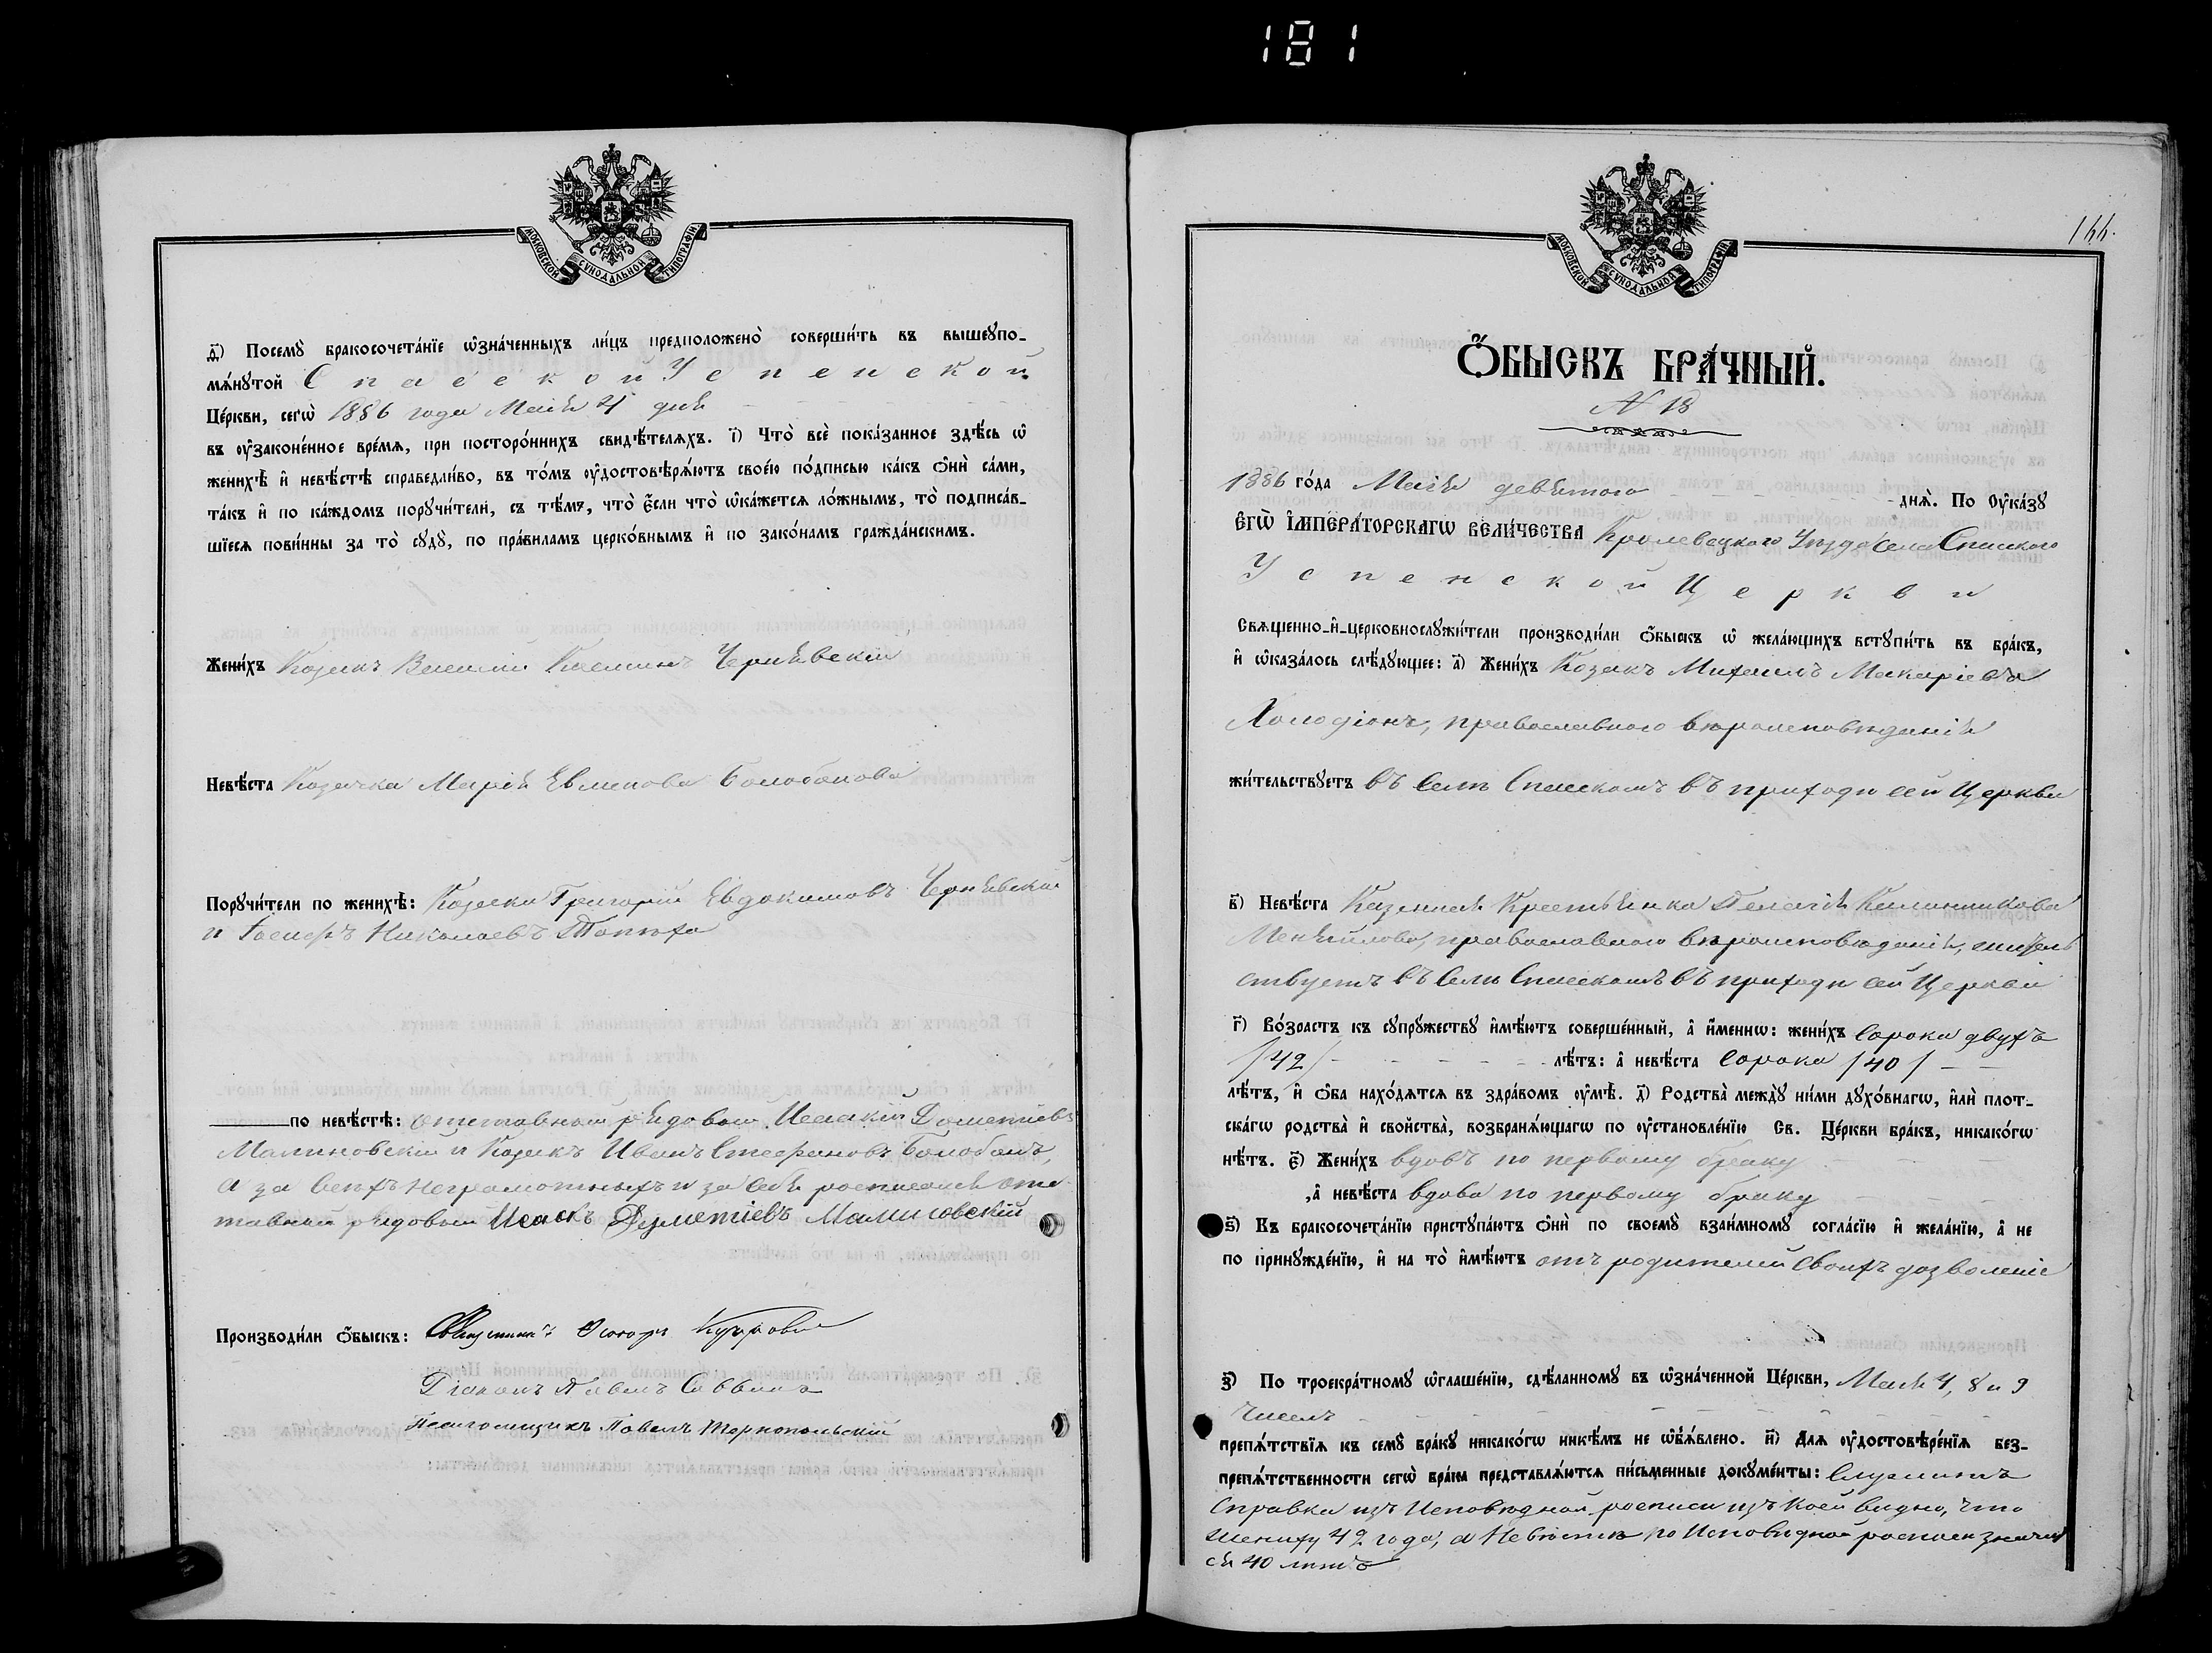 181
МОСКОВСКОЙ СѴНОДАЛЬНОЙ ТИПОГРАФІИ
д҃і) Посемꙋ̀ бракосочета́нїе ѡ҆зна́ченныхъ ли́цъ предположено̀ соверши́ть въ вышеꙋпо-
мѧ́нꙋтой Спасской Успенской
Це́ркви, сегѡ̀ 1886 года Маія 4 дня
въ ᲂу҆законе́нное вре́мѧ, при посторо́ннихъ свидѣ́телѧхъ. і҃) Что̀ всѐ пока́занное здѣ́сь ѡ҆
женихѣ̀ и҆ невѣ́стѣ справедли́во, въ то́мъ ᲂу҆достовѣрѧ́ютъ свое́ю по́дписью ка́къ ѻ҆нѝ са́ми,
та́къ и҆ по ка́ждомъ порꙋчи́тели, съ тѣ́мъ, что̀ є҆́сли что̀ ѡ҆ка́жетсѧ ло́жнымъ, то̀ подписа́в-
шїесѧ пови́нны за то̀ сꙋдꙋ̀, по пра́виламъ церко́внымъ и҆ по зако́намъ гражда́нскимъ.
Жени́хъ Козакъ Василій Касьянъ Чернявскій
Невѣ́ста Козачка Марія Евменова Болобанова
Порꙋчи́тели по женихѣ̀: Козаки Григорій Евдокимовъ Чернявскій
и Іосифъ Николаевъ Топтха
по невѣ́стѣ: отставной рядовой Исаакій Дометіевъ
Малиновскій и Козакъ Иванъ Стефановъ Болобанъ,
а за всѣхъ неграмотныхъ и за себя росписался отс
тавной рядовой Исаакъ Дометіевъ Малиновскій
Производи́ли ѻ҆́быскъ: Священникъ
Діаконъ Павелъ Саввинъ
Псаломщикъ Павелъ Тернопольскій
144.
МОСКОВСКОЙ СѴНОДАЛЬНОЙ ТИПОГРАФІИ
Ѻ҆́БЫСКЪ БРА́ЧНЫЙ.
N 18
1886 го́да Маія девятого днѧ̀. По Оу҆ка́зꙋ
Є҆ГѠ̀ И҆МПЕРА́ТОРСКАГѠ ВЕЛИ́ЧЕСТВА Кролевецкого Уѣзда Села Спаского
Успенской Церкви
Свѧще́нно-и҆-церковнослꙋжи́тели производи́ли ѻ҆́быскъ ѡ҆ жела́ющихъ встꙋпи́ть въ бра́къ,
и҆ ѡ҆каза́лось слѣ́дꙋющее: а҃) Жени́хъ Козакъ Михаилъ Макаріевъ
Холодіонъ, православного вѣроисповѣданія
жи́тельствꙋетъ въ селѣ Спасскомъ въ приходѣ сей Церкви
в҃) Невѣ́ста Казенная Крестьянка Пелагія Калинникова
Меняйлова, православного вѣроисповѣданія, житель
ствуетъ въ Селѣ Спасскомъ въ приходѣ сей Церкви
г҃) Во́зрастъ къ сꙋпрꙋ́жествꙋ и҆мѣ́ютъ соверше́нный, а҆ и҆́менню: жени́хъ сорока двухъ
/42/ лѣ́тъ: а҆ невѣ́ста сорока /40/
лѣ́тъ, и҆ ѻ҆́ба нахо́дѧтсѧ въ здра́вомъ ᲂу҆мѣ̀. д҃) Родства̀ междꙋ̀ ни́ми дꙋхо́внагѡ, и҆лѝ плот-
ска́гѡ родства̀ и҆ свойства̀, возбранѧ́ющагѡ по ᲂу҆становле́нїю Св. Це́ркви бра́къ, никако́гѡ
нѣ́тъ. є҃) Жени́хъ вдовъ по первому браку
,а҆ невѣ́ста вдова по первому браку
ѕ҃) Къ бракосочета́нїю пристꙋпа́ютъ ѻ҆нѝ по своемꙋ̀ взаи́мномꙋ согла́сїю и҆ жела́нїю, а҆ не
по принꙋжде́нїю, и҆ на то̀ и҆мѣ́ютъ отъ родителей своихъ дозволеніе
з҃) По троекра́тномꙋ ѡ҆глаше́нїю, сдѣ́ланномꙋ въ ѡ҆зна́ченной Це́ркви, Маія 4, 8 и 9
чиселъ
препѧ́тствїѧ къ семꙋ̀ бра́кꙋ никако́гѡ никѣ́мъ не ѡ҆б̾ѧ́влено. и҃) Длѧ ᲂу҆достовѣре́нїѧ без-
препѧ́тственности сегѡ̀ бра́ка представлѧ́ютсѧ пи́сьменные докꙋме́нты: служитъ
Справка изъ Исповѣдной росписи изъ коей видно, что
жениху 42 года, а Невѣстѣ по Исповѣдной росписи значит
ся 40 лѣтъ